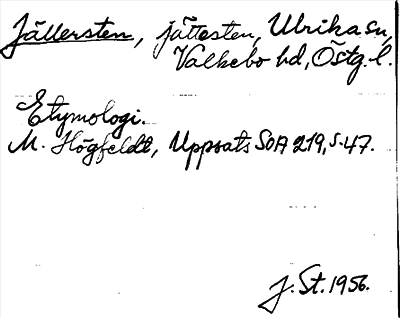 Jällersten, jättesten, Ulrika sn,
Valkebo hd, Östg. l.
Etymologi.
M. Högfeldt, Uppsats SOA 219, s. 47.
J. St. 1956.